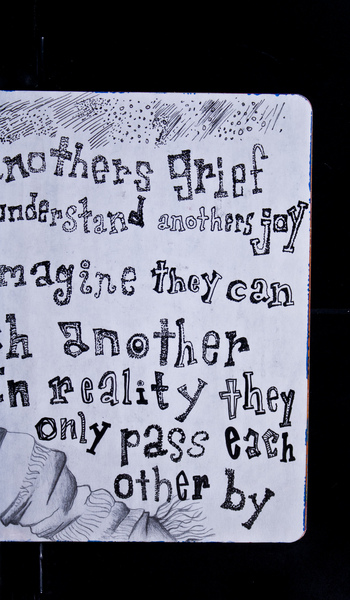 nothers grief
understand anothers joy
magine they can
h another
In reality they
only pass each
other by